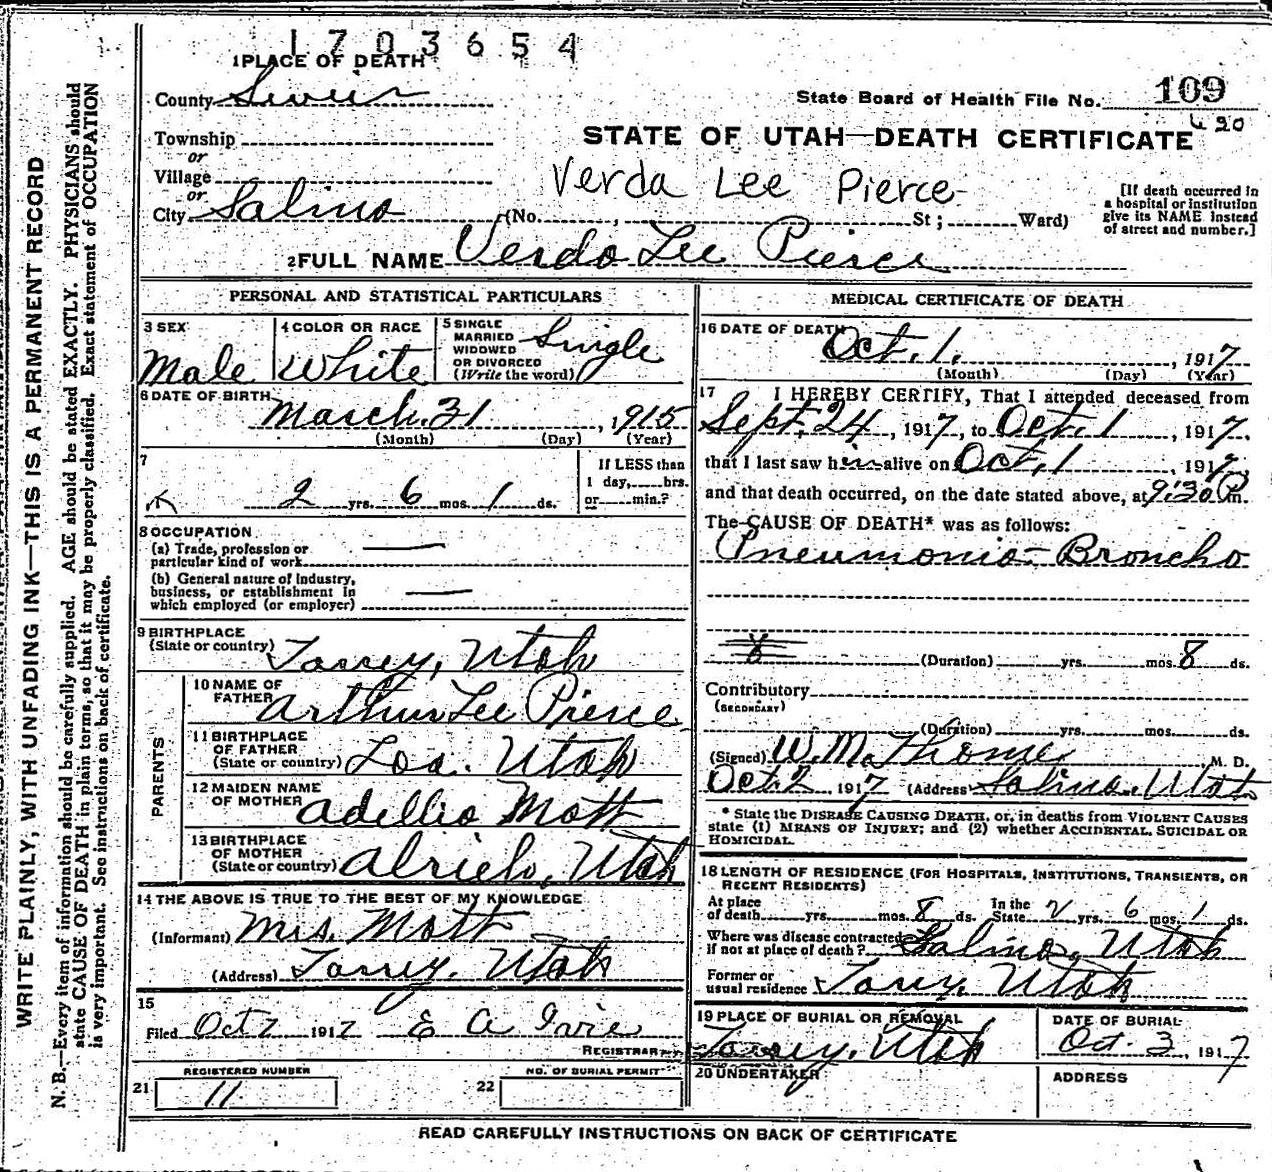 1703654
1 PLACE OF DEATH
County Sevier
State Board of Health File No. 109
Township
or
STATE OF UTAH—DEATH CERTIFICATE
Village
or
Verda Lee Pierce
[If death occurred in
a hospital or institution
give its NAME instead
of street and number.]
City Salina (No. , St ; Ward)
2 FULL NAME Verda Lee Pierce
PERSONAL AND STATISTICAL PARTICULARS
3 SEX Male
4 COLOR OR RACE White
5 SINGLE
MARRIED
WIDOWED
OR DIVORCED
(Write the word) Single
6 DATE OF BIRTH March 31, 1915
(Month) (Day) (Year)
7
2 yrs. 6 mos. 1 ds.
If LESS than
1 day, hrs.
or min.?
8 OCCUPATION
(a) Trade, profession or
particular kind of work
(b) General nature of industry,
business, or establishment in
which employed (or employer)
9 BIRTHPLACE
(State or country) Torrey, Utah
PARENTS
10 NAME OF
FATHER Arthur Lee Pierce
11 BIRTHPLACE
OF FATHER
(State or country) Loa. Utah
12 MAIDEN NAME
OF MOTHER Adellia Mott
13 BIRTHPLACE
OF MOTHER
(State or country) Utah
14 THE ABOVE IS TRUE TO THE BEST OF MY KNOWLEDGE
(Informant) Mrs. Mott
(Address) Torrey, Utah
15
Filed Oct 2 1917 E A Ivie
REGISTRAR
REGISTERED NUMBER
21 11
NO. OF BURIAL PERMIT
22
MEDICAL CERTIFICATE OF DEATH
16 DATE OF DEATH Oct. 1. , 1917
(Month) (Day) (Year)
17 I HEREBY CERTIFY, That I attended deceased from
Sept. 24, 1917, to Oct. 1, 1917,
that I last saw him alive on Oct. 1, 1917,
and that death occurred, on the date stated above, at 9:30 P m.
The CAUSE OF DEATH* was as follows:
Pneumonia - Broncho
(Duration) yrs. mos. 8 ds.
Contributory
(SECONDARY)
(Duration) yrs. mos. ds.
(Signed) W. M. , M. D.
Oct. 2, 1917 (Address) Salina. Utah
* State the DISEASE CAUSING DEATH, or, in deaths from VIOLENT CAUSES
state (1) MEANS OF INJURY; and (2) whether ACCIDENTAL, SUICIDAL OR
HOMICIDAL.
18 LENGTH OF RESIDENCE (FOR HOSPITALS, INSTITUTIONS, TRANSIENTS, OR
RECENT RESIDENTS)
At place
of death yrs. mos. 8 ds.
In the
State 2 yrs. 6 mos. 1 ds.
Where was disease contracted
if not at place of death? Salina, Utah
Former or
usual residence Torrey, Utah
19 PLACE OF BURIAL OR REMOVAL
Torrey, Utah
DATE OF BURIAL
Oct. 3, 1917
20 UNDERTAKER
ADDRESS
READ CAREFULLY INSTRUCTIONS ON BACK OF CERTIFICATE
WRITE PLAINLY, WITH UNFADING INK—THIS IS A PERMANENT RECORD
N. B.—Every item of information should be carefully supplied. AGE should be stated EXACTLY. PHYSICIANS should
state CAUSE OF DEATH in plain terms, so that it may be properly classified. Exact statement of OCCUPATION
is very important. See instructions on back of certificate.